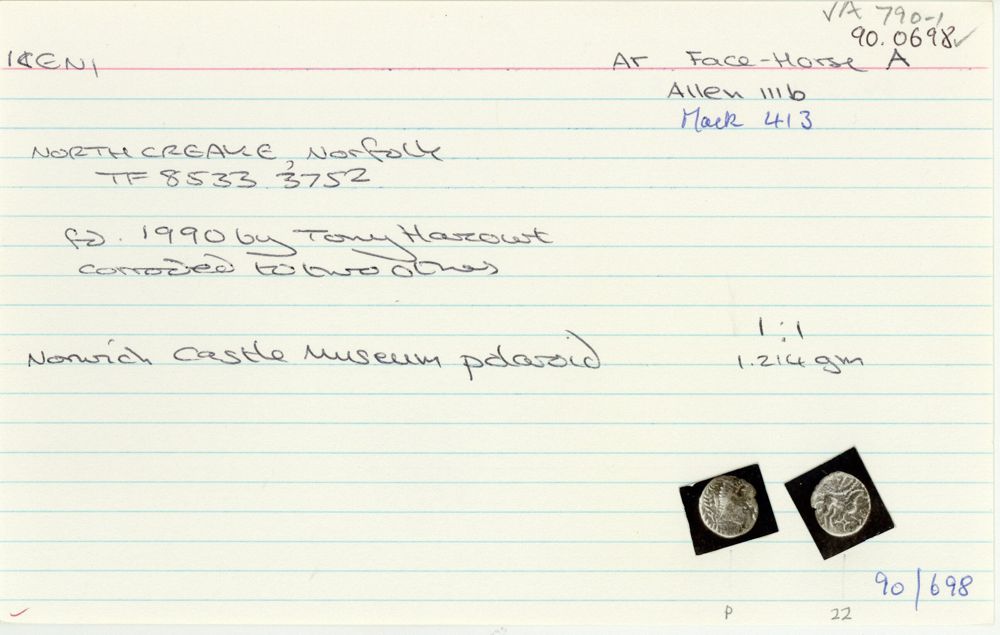 VA 790-1
90.0698✓
ICENI
Ar Face-Horse A
Allen IIIb
Mack 413
NORTH CREAKE, Norfolk
TF 8533 3752
fd. 1990 by Tony
corroded to two others
Norwich Castle Museum polaroid
1:1
1.214 gm
90/698
P 22